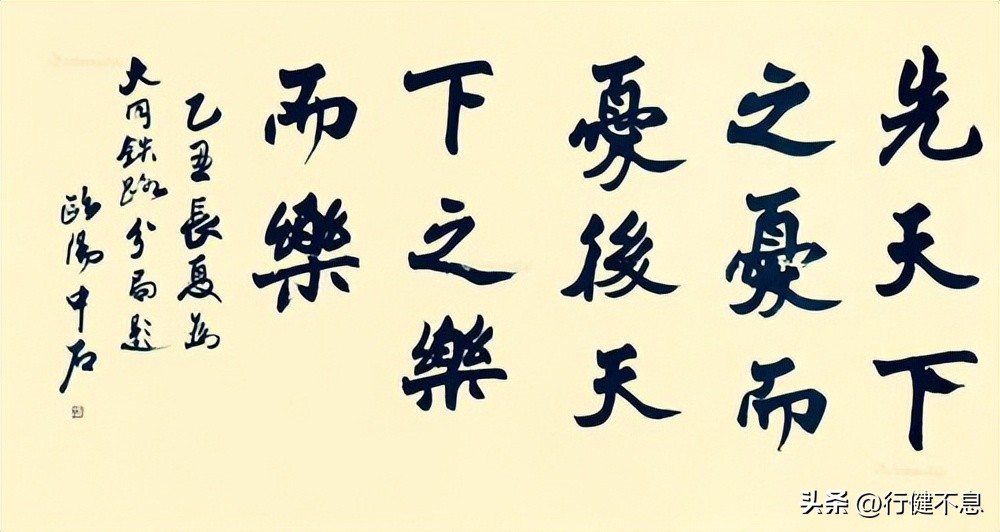 先天下
之憂而
憂後天
下之樂
而樂
乙丑長夏為
大同鉄路分局題
歐陽中石
头条 @行健不息